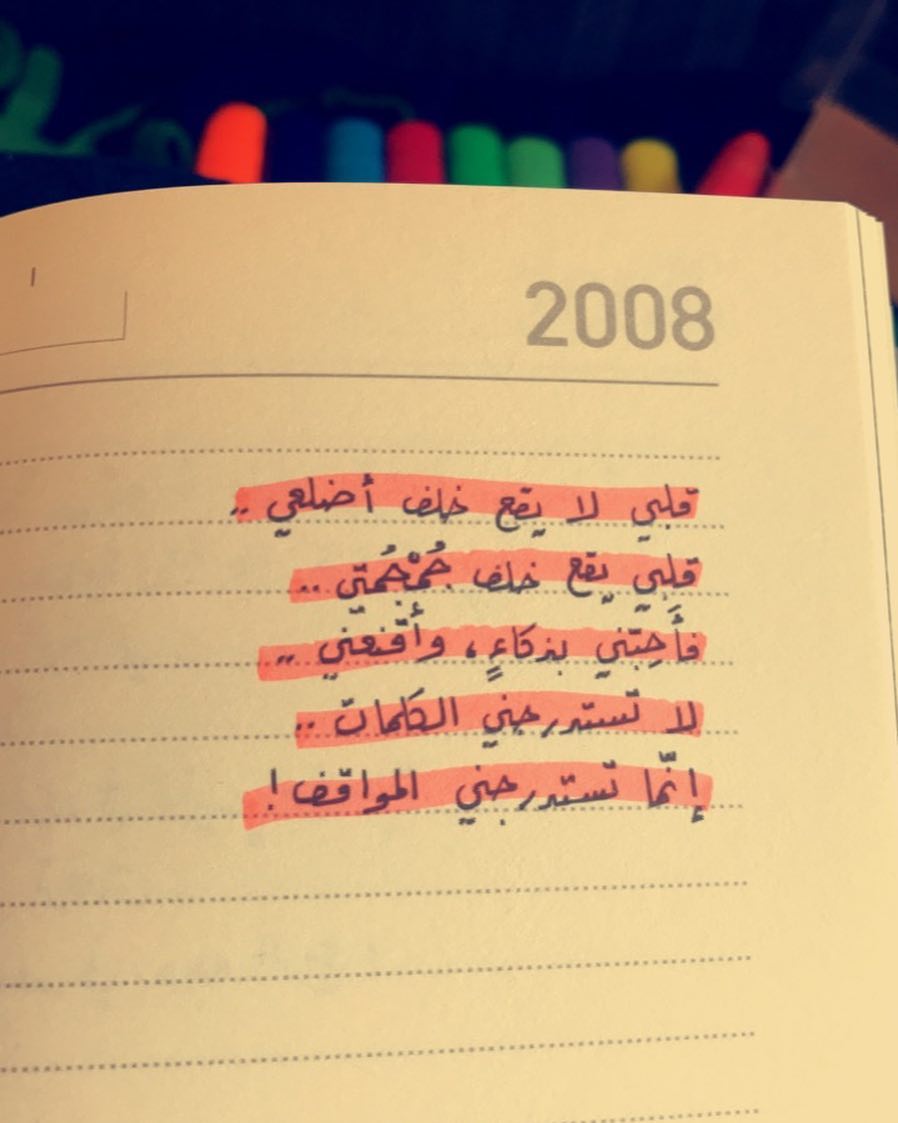 2008
قلبي لا يقع خلف أضلعي ..
قلبي يقع خلف جُمْجُمتي ..
فأَحِبّني بذكاءٍ، وأقْنعني ..
لا تستدرجني الكلمات ..
إنّما تستدرجني المواقف!